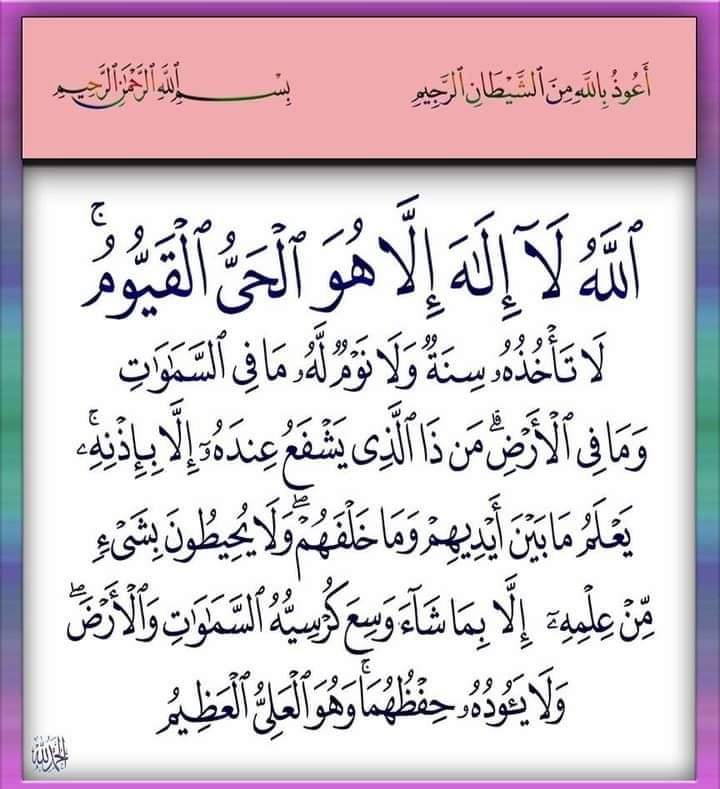 أَعُوذُ بِٱللَّهِ مِنَ ٱلشَّيْطَانِ ٱلرَّجِيمِ بِسْمِ ٱللَّهِ ٱلرَّحْمَٰنِ ٱلرَّحِيمِ
ٱللَّهُ لَآ إِلَٰهَ إِلَّا هُوَ ٱلْحَىُّ ٱلْقَيُّومُ ۚ
لَا تَأْخُذُهُۥ سِنَةٌ وَلَا نَوْمٌ لَّهُۥ مَا فِى ٱلسَّمَٰوَٰتِ
وَمَا فِى ٱلْأَرْضِ ۗ مَن ذَا ٱلَّذِى يَشْفَعُ عِندَهُۥٓ إِلَّا بِإِذْنِهِۦ ۚ
يَعْلَمُ مَا بَيْنَ أَيْدِيهِمْ وَمَا خَلْفَهُمْ ۖ وَلَا يُحِيطُونَ بِشَىْءٍ
مِّنْ عِلْمِهِۦٓ إِلَّا بِمَا شَآءَ وَسِعَ كُرْسِيُّهُ ٱلسَّمَٰوَٰتِ وَٱلْأَرْضَ ۖ
وَلَا يَـُٔودُهُۥ حِفْظُهُمَا ۚ وَهُوَ ٱلْعَلِىُّ ٱلْعَظِيمُ
الحمد لله